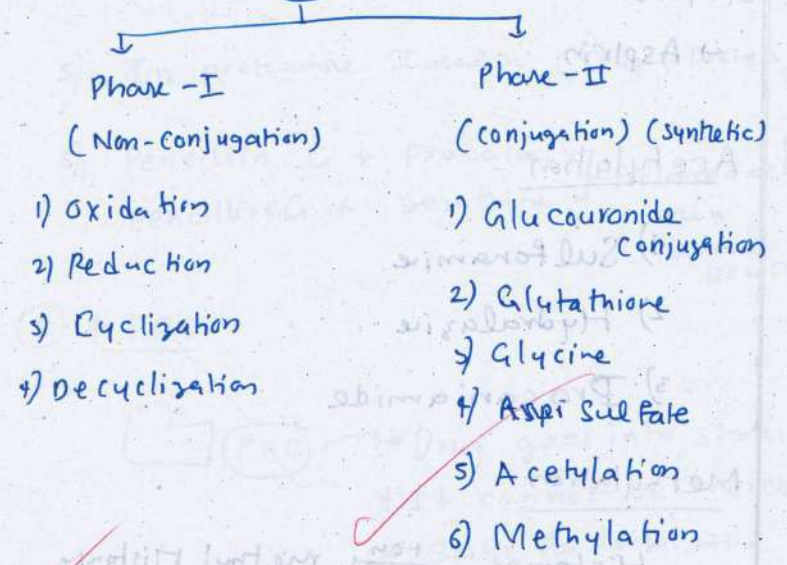 Phase - I
(Non-Conjugation)
1) Oxidation
2) Reduction
3) Cyclization
4) Decyclization
Phase - II
(Conjugation) (Synthetic)
1) Glucouronide
Conjugation
2) Glutathione
3) Glycine
4) Sulfate
5) Acetylation
6) Methylation